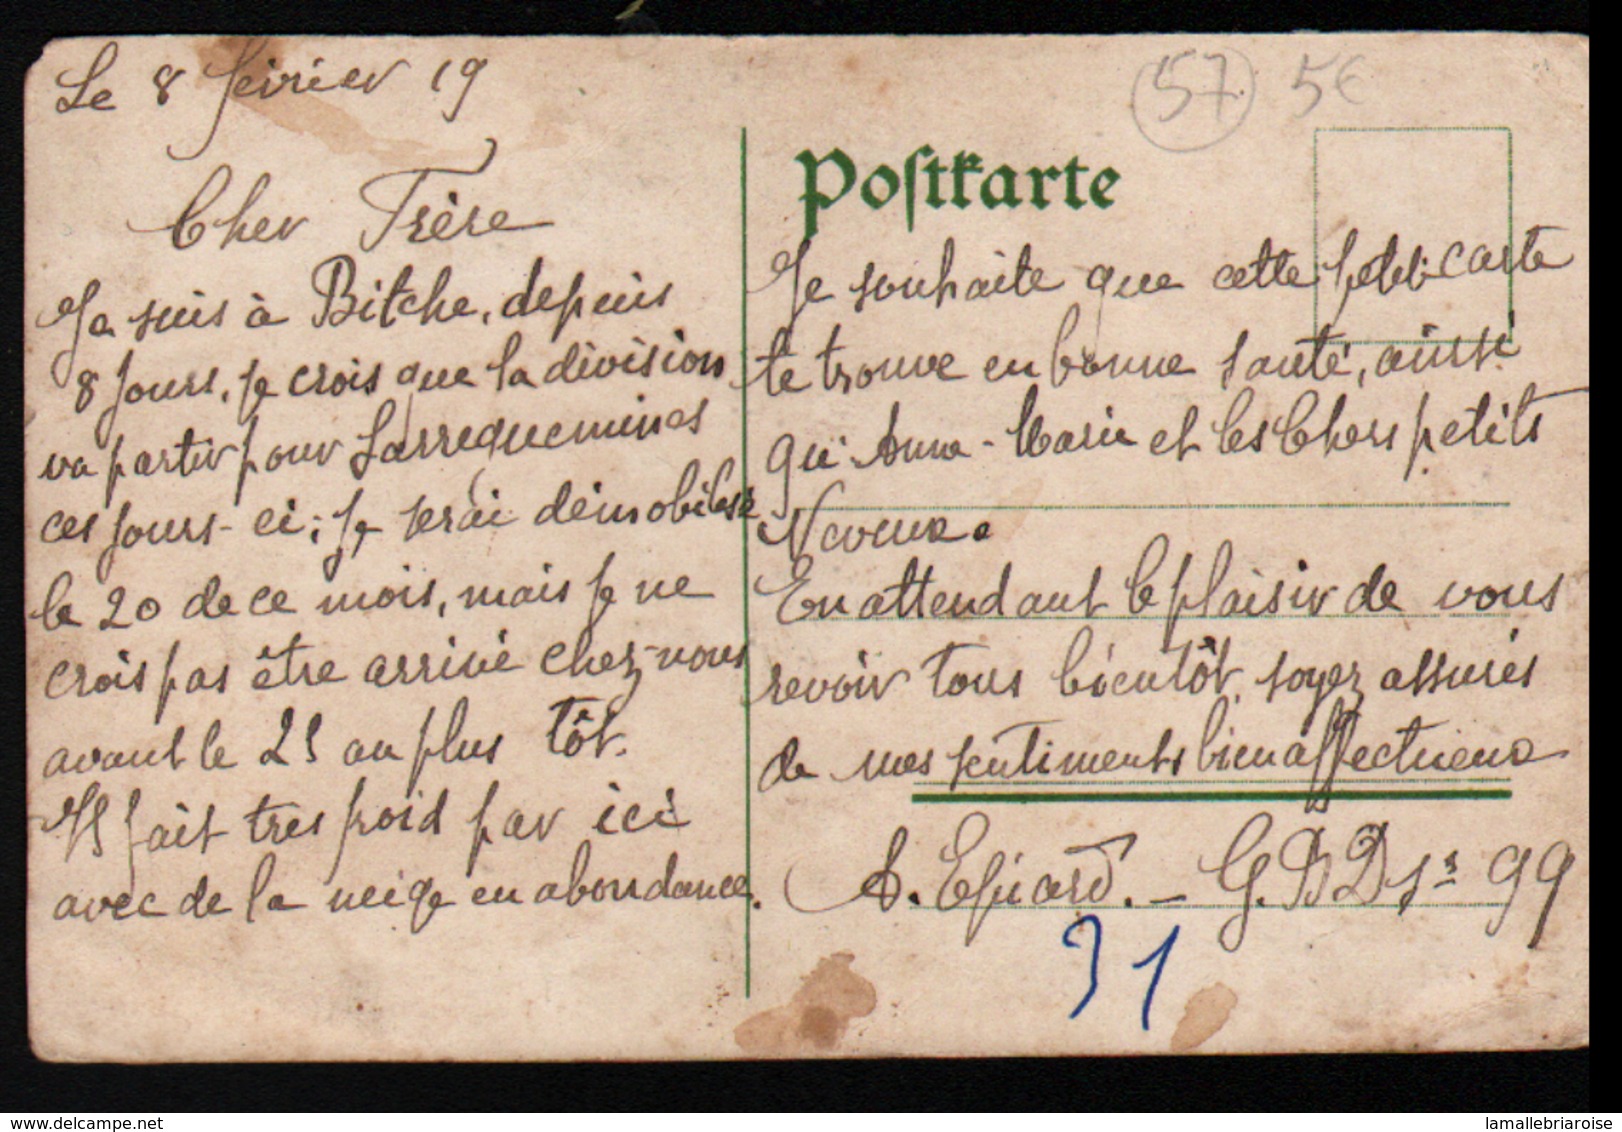 Le 8 février 19
Cher Frère
Je suis à Bitche, depuis
8 jours, je crois que la division
va partir pour Sarreguemines
ces jours-ci; je serai démobilisé
le 20 de ce mois, mais je ne
crois pas être arrivé chez-vous
avant le 25 au plus tôt.
Il fait tres froid par ici
avec de la neige en abondance.
57 5€
Postkarte
Je souhaite que cette petite carte
te trouve en bonne santé, ainsi
qu'Anna-Marie et les Chers petits
Neveux.
En attendant le plaisir de vous
revoir tous bientôt, soyez assurés
de mes sentiments bien affectueux
A. Epicard. - G.B.D 99
31
lamallebriaroise